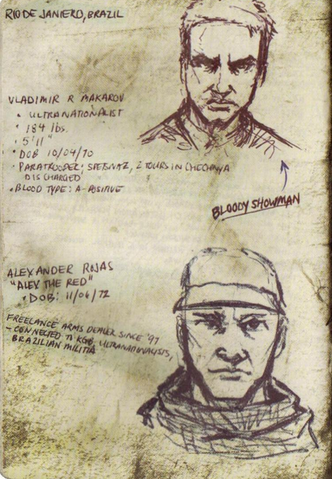 RIO DE JANIERO, BRAZIL
VLADIMIR R MAKAROV
• ULTRANATIONALIST
• 184 lbs.
• 5'11"
• DOB 10/04/70
• PARATROOPER: SPETSNAZ, 2 TOURS IN CHECHNYA
DISCHARGED
• BLOOD TYPE: A-POSITIVE
BLOODY SHOWMAN
ALEXANDER ROJAS
"ALEX THE RED"
• DOB: 11/06/72
FREELANCE ARMS DEALER SINCE '97
- CONNECTED TO KGB, ULTRANATIONALISTS,
BRAZILIAN MILITIA